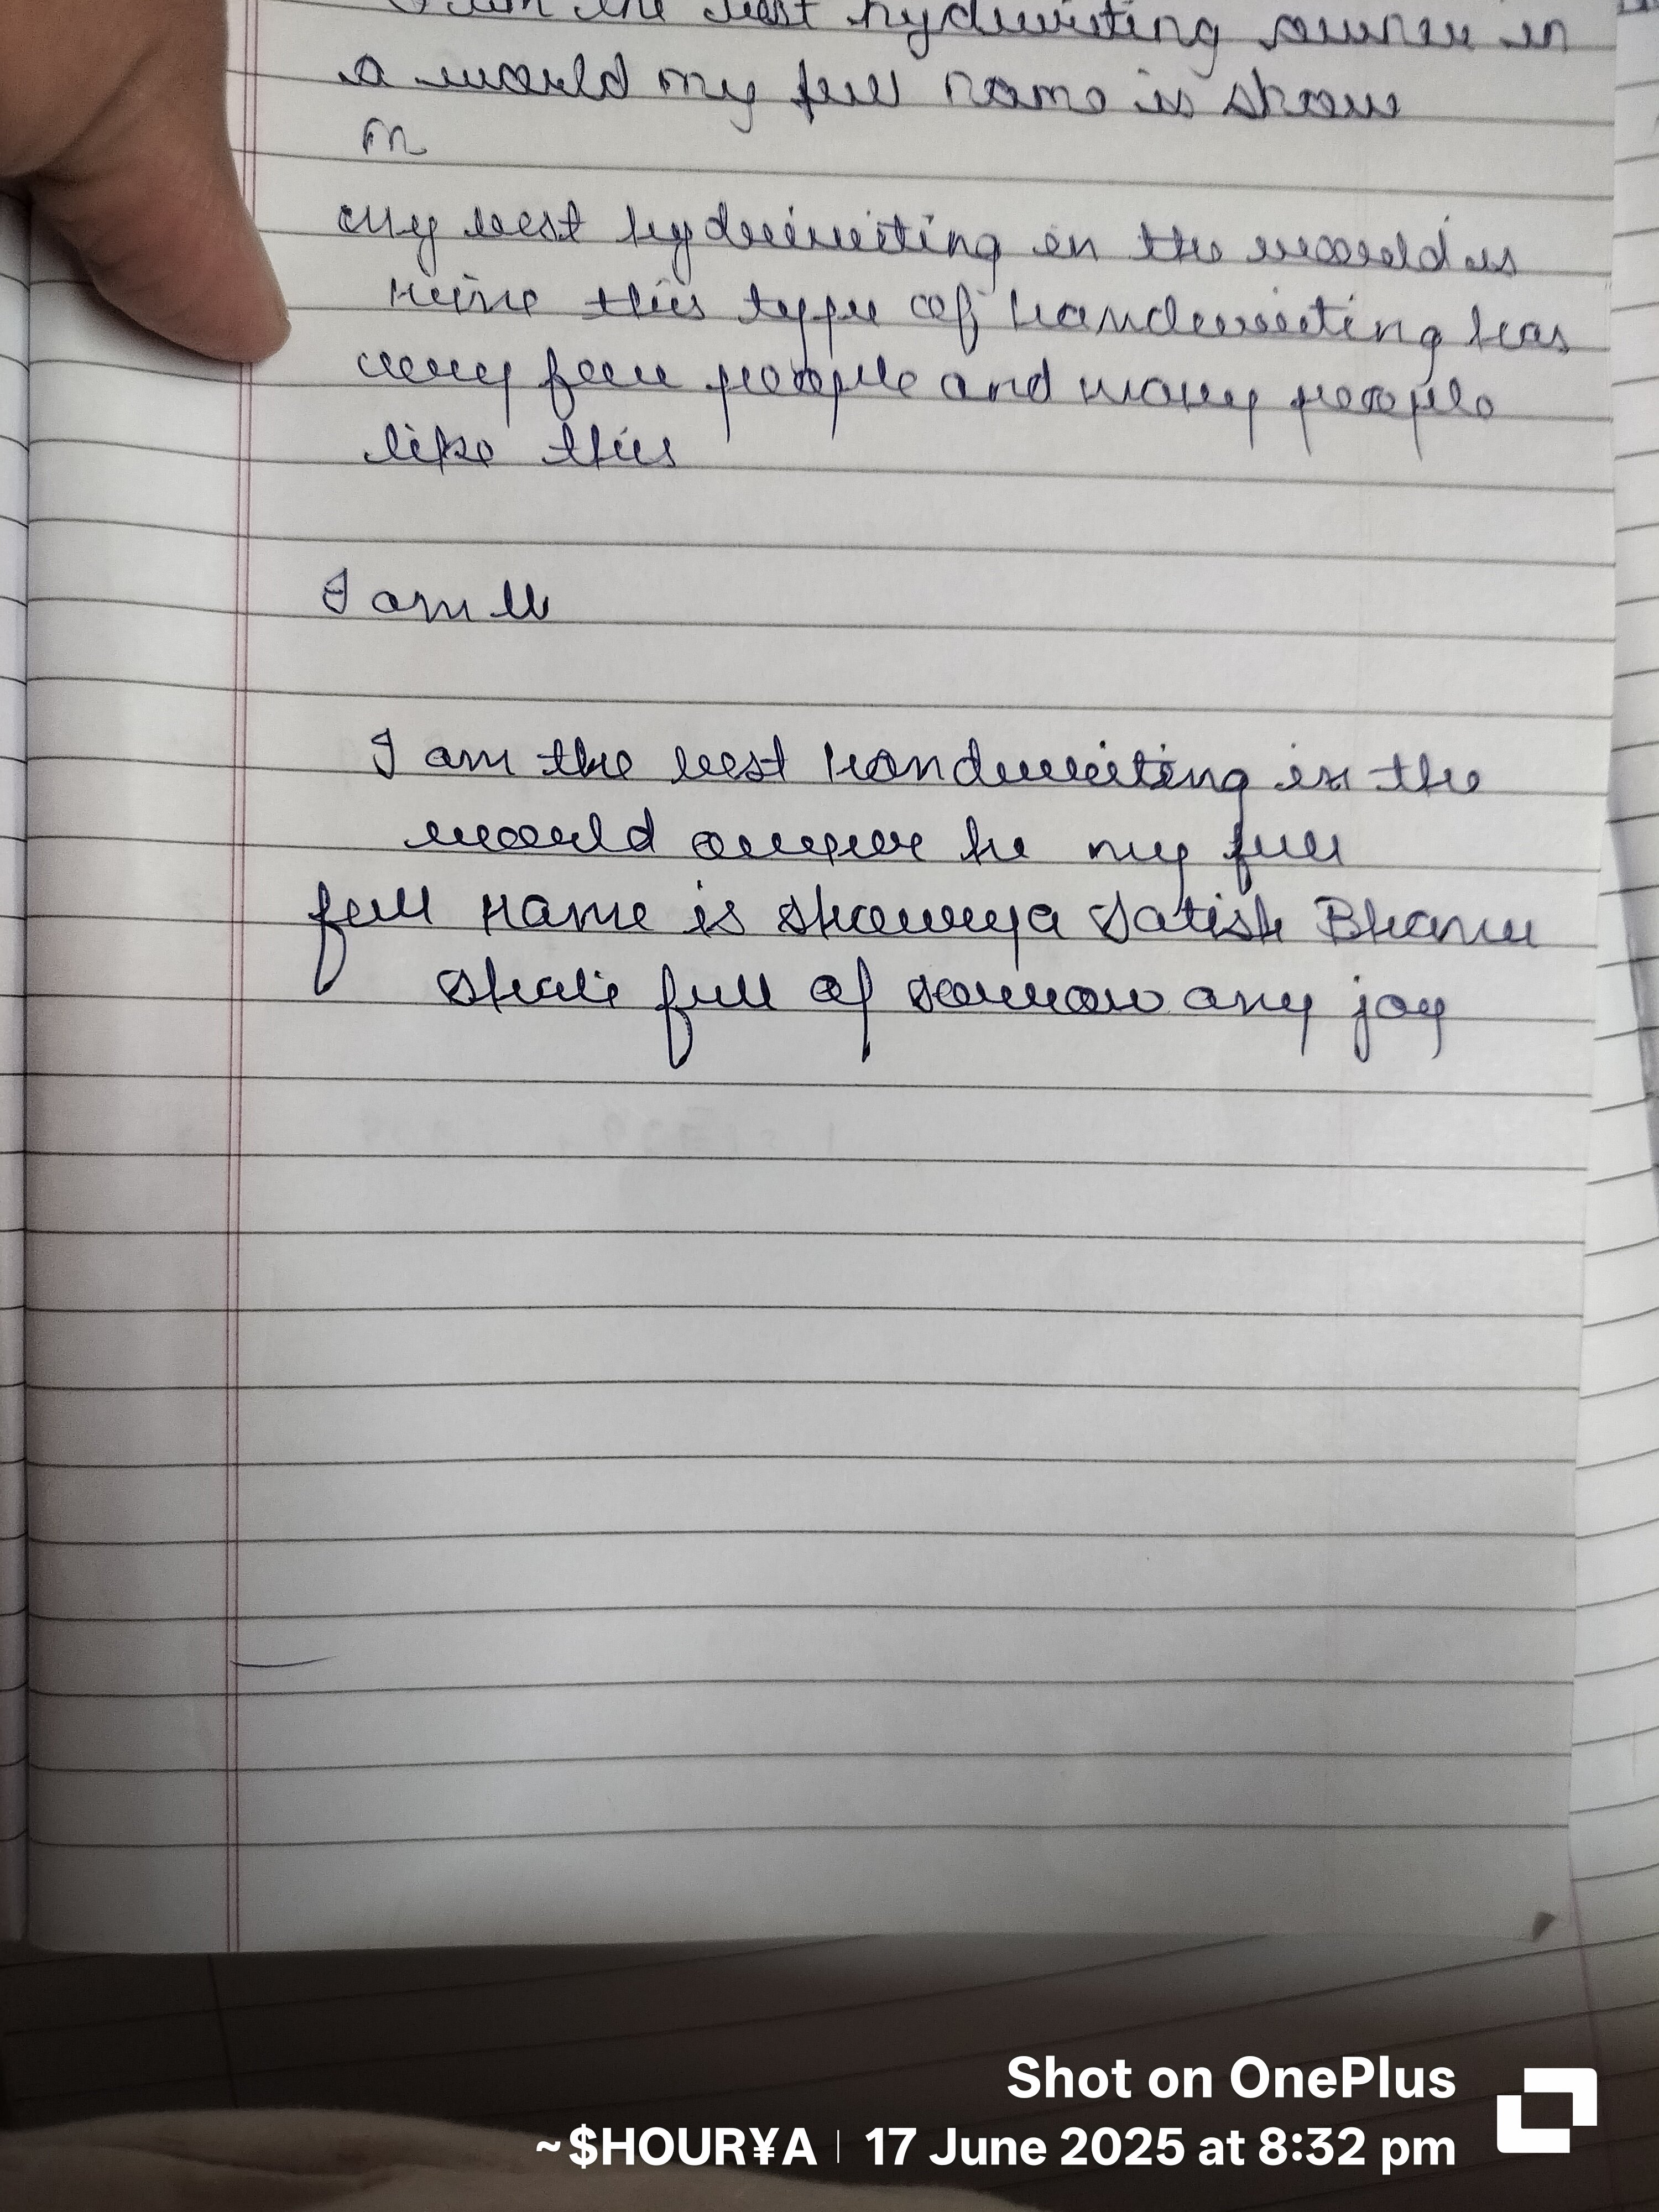 I am the best hydwriting owner in
a world my full name is show
m
my best hydwriting in the world is
mine this type of handwriting has
very few people and many people
like this
I am the
I am the best handwriting in the
world owner he my full
full name is shourya Satish Bhanu
full of sorrow any joy
Shot on OnePlus
~$HOUR¥A | 17 June 2025 at 8:32 pm